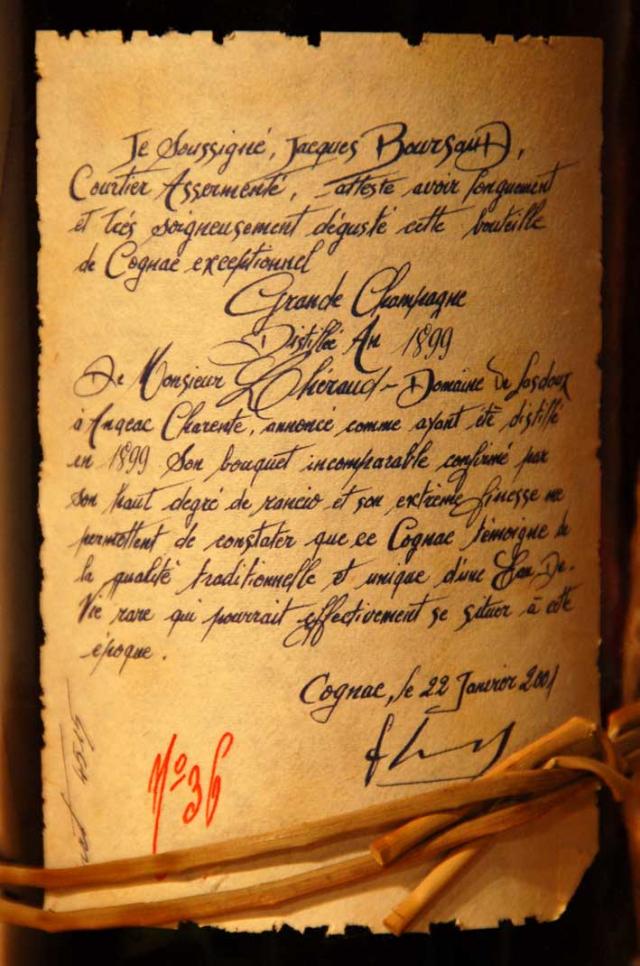 Je Soussigné, Jacques Boursaud,
Courtier Assermenté, atteste avoir longuement
et très soigneusement dégusté cette bouteille
de Cognac exceptionnel
Grande Champagne
Distillé An 1899
De Monsieur Lhéraud - Domaine de Lasdoux
à Angeac Charente, annoncé comme ayant été distillé
en 1899 Son bouquet incomparable confirmé par
son haut degré de rancio et son extrème finesse me
permettent de constater que ce Cognac témoigne de
la qualité traditionnelle et unique d'une Eau. De.
Vie rare qui pourrait effectivement se situer à cette
époque.
Cognac, le 22 Janvier 2001
N° 36